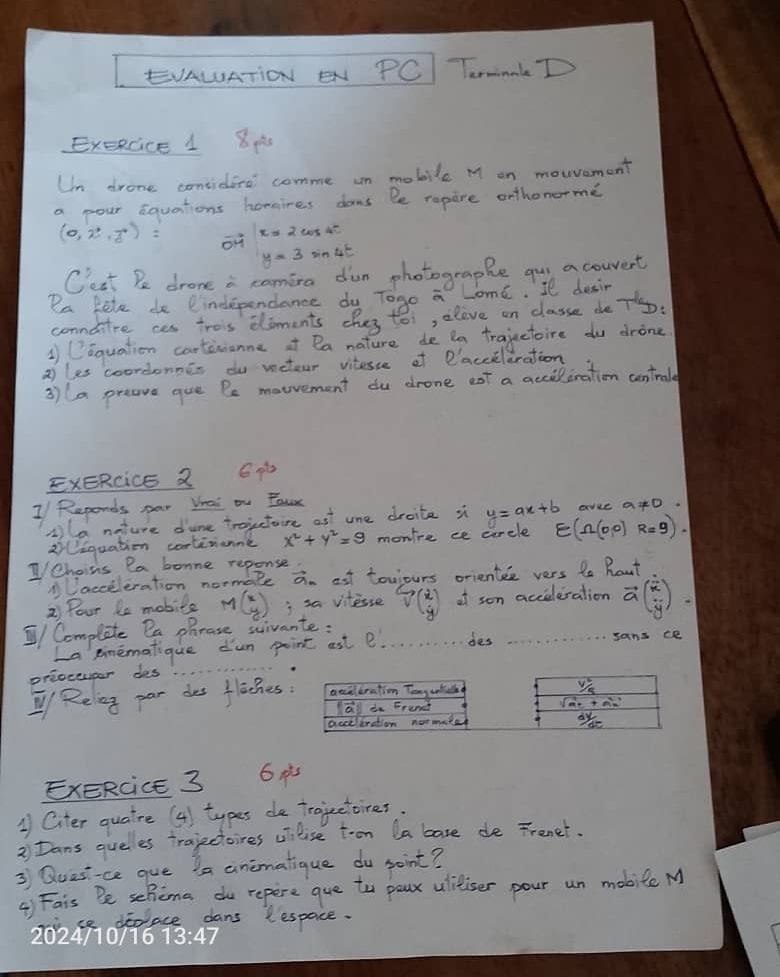 EVALUATION EN PC Terminale D
EXERCICE 1 8 pts
Un drone considéré comme un mobile M en mouvement
a pour équations horaires dans le repère orthonormé
OM | x = 2 cos 4t
y = 3 sin 4t
C'est le drone à caméra d'un photographe qui a couvert
la fête de l'indépendance du Togo à Lomé. Il desir
connaître ces trois éléments chez toi, élève en classe de Tle D:
1) L'équation cartésienne et la nature de la trajectoire du drône
2) Les coordonnés du vecteur vitesse et l'accélération.
3) La preuve que le mouvement du drone est a accélération centrale
EXERCICE 2 6 pts
I/ Reponds par Vrai ou Faux
1) La nature d'une trajectoire est une droite si y = ax + b avec a ≠ 0.
2) L'équation cartésienne x² + y² = 9 montre ce cercle E(Ω(0,0) R=9).
II/ Choisis la bonne reponse.
1) L'accélération normale a⃗n est toujours orientée vers le haut.
2) Pour le mobile M(x y) ; sa vitesse V⃗(ẋ ẏ) et son accélération a⃗(ẍ ÿ).
III/ Complète la phrase suivante :
La cinématique d'un point est l'.......... des ............ sans ce
préoccuper des ............ .
IV/ Reliez par des flèches :
accélération Tangentielle
||a⃗|| de Frenet
accélération normale
dv/dt
EXERCICE 3 6 pts
1) Citer quatre (4) types de trajectoires.
2) Dans quelles trajectoires utilise t-on la base de Frenet.
3) Quest-ce que la cinématique du point?
4) Fais le schéma du repère que tu peux utiliser pour un mobile M
qui se déplace dans l'espace.
2024/10/16 13:47